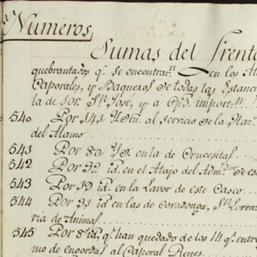 Numeros,
Sumas del frente
quebrantados q.e se encontrar.n en los
Caporales, y Baqueros de todas las Estanc
la de sor. S.n Jose, y a
540 Por 141 Yd. al servicio de la
del Alamo
541 Por 80 Yd. en la de Crucesitas
542 Por 32 id. en el Atajo del Adm.or de es
543 Por 19 id. en la Lavor de este Casco
544 Por 21 id. en las de S.n Lorenz
ria de Animas
545 Por 8 id. q.e han quedado de los 14 q.e entre
mo de engordas al Caporal Reyes